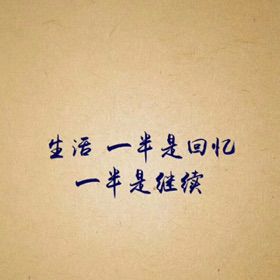 生活 一半是回忆
一半是继续